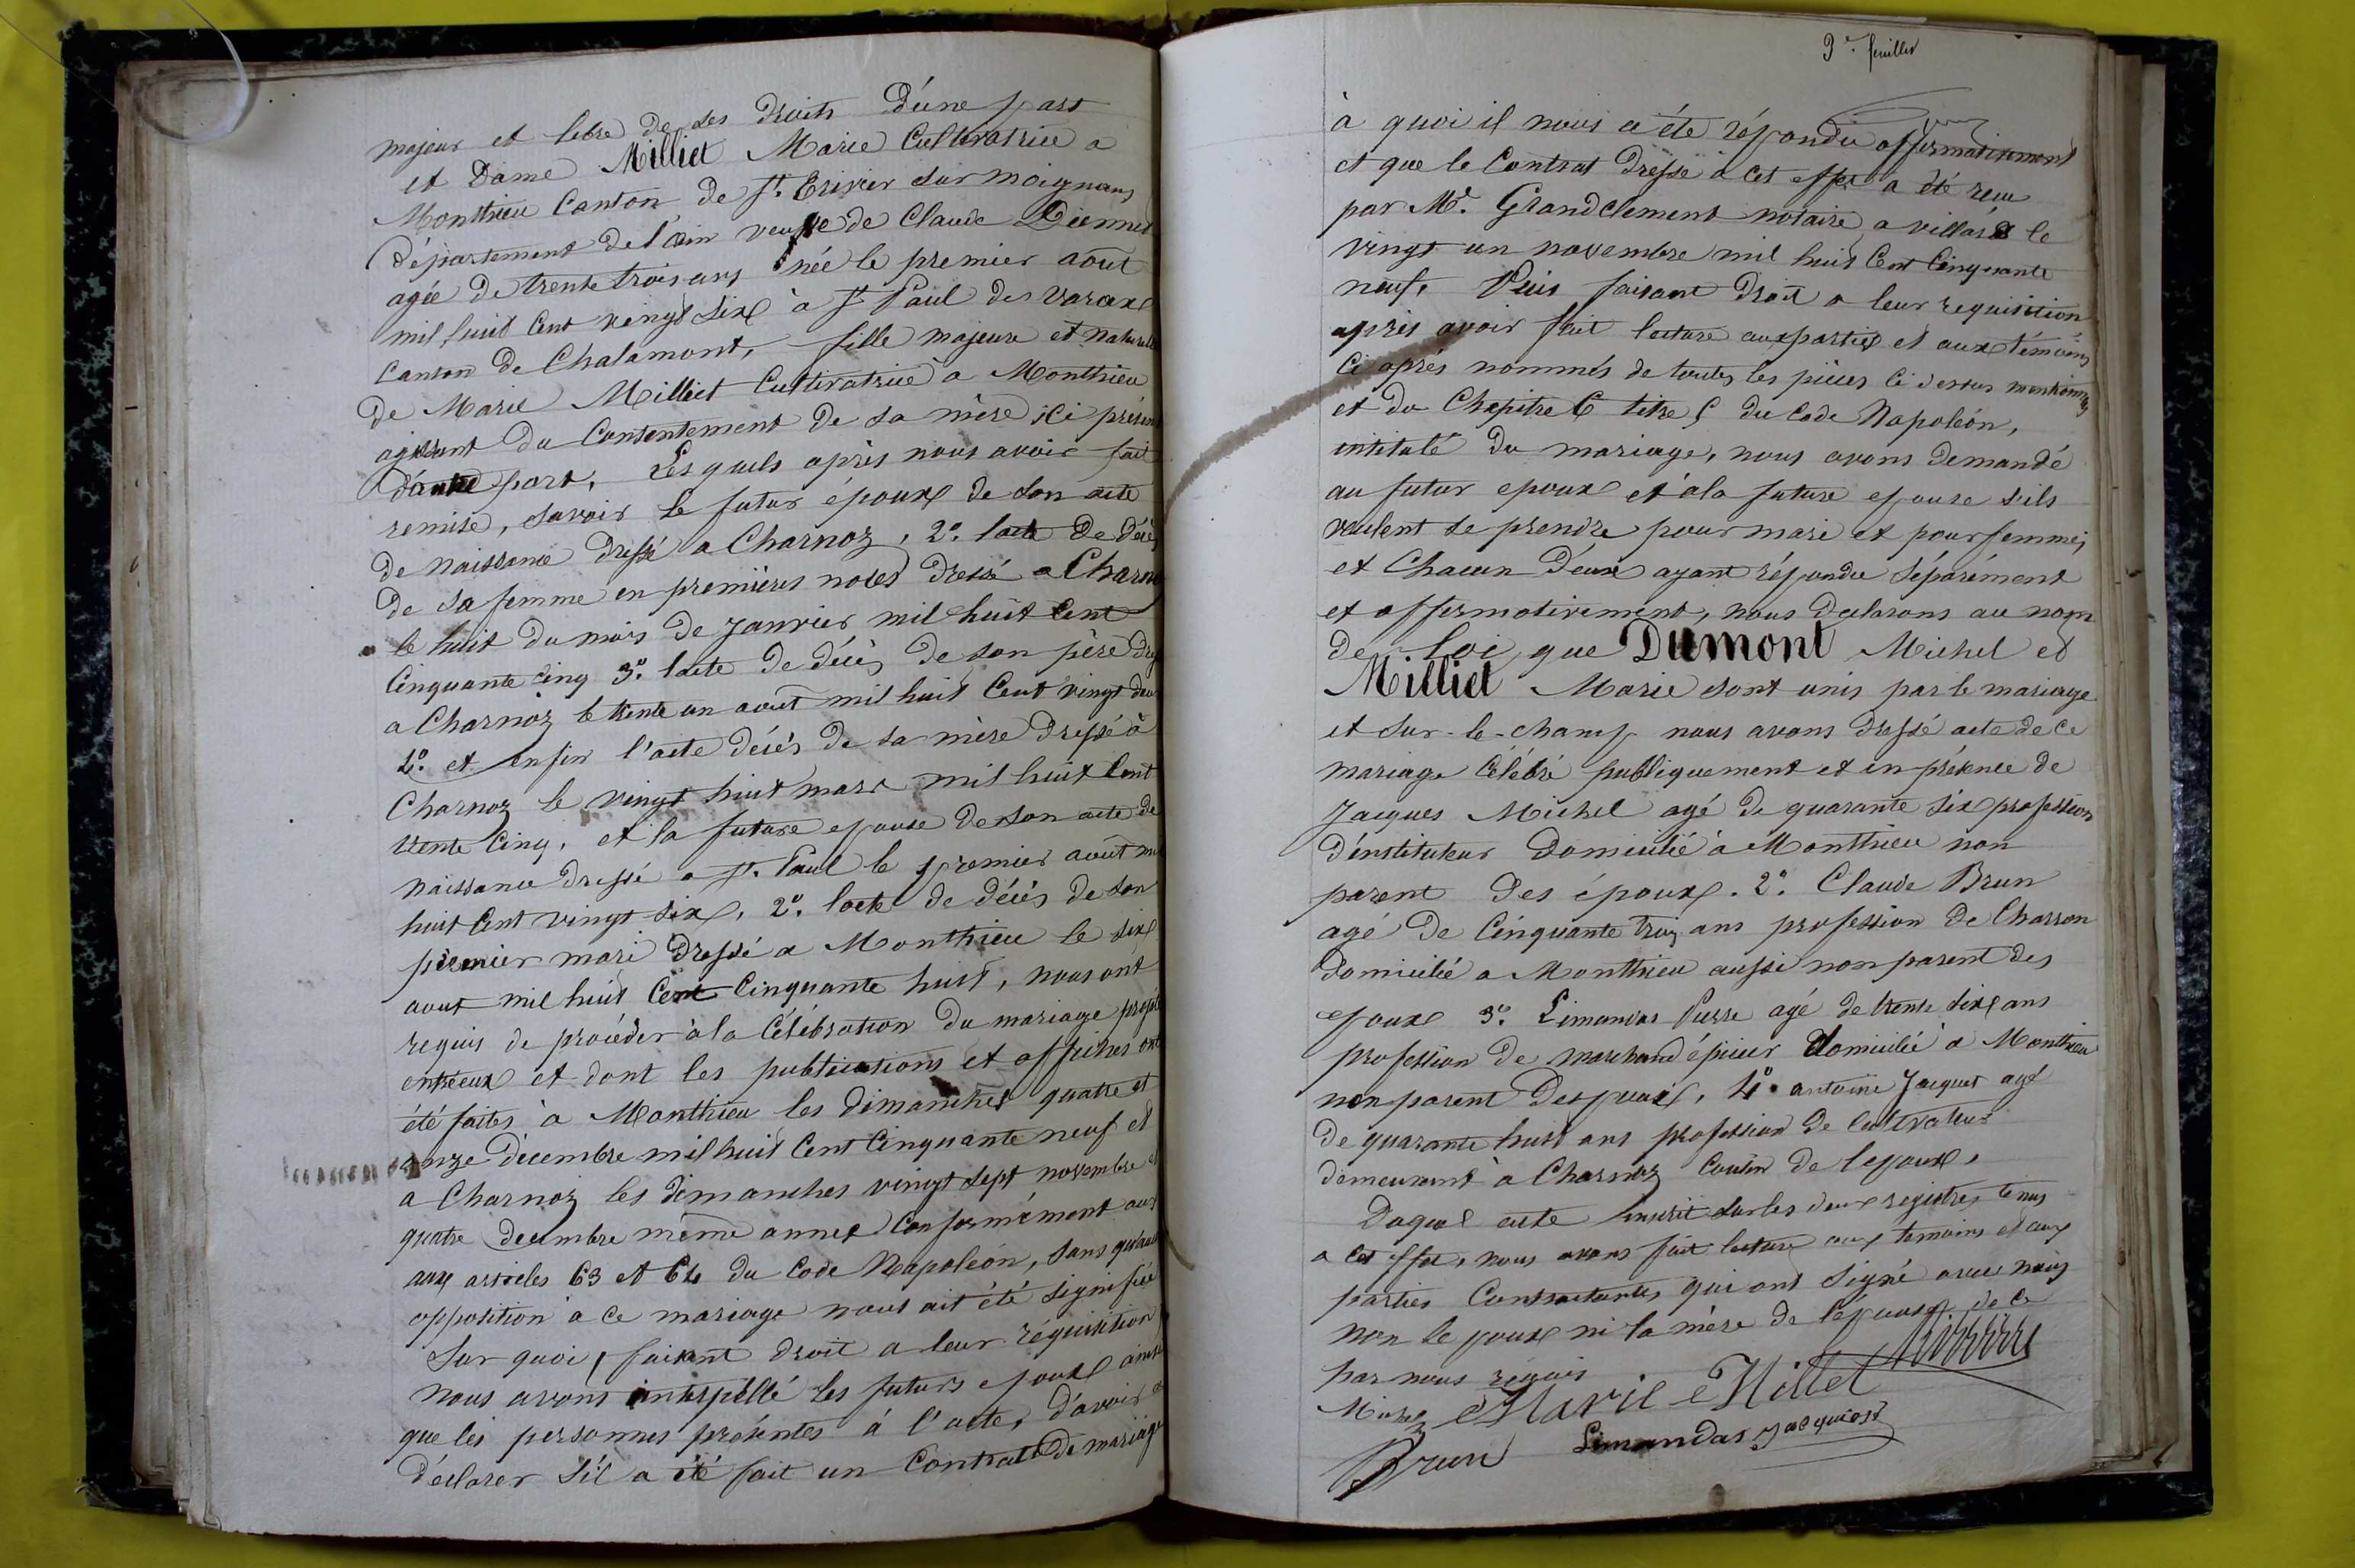 majeur et libre de ses droits D'une part
et Dame Milliet Marie Cultivatrice a
Monthieu Canton de St. Trivier sur moignans
département de l'ain veuve de Claude
agée de trente trois ans née le premier aout
mil huit Cent vingt six à St Paul de Varax
Canton de Chalamont, fille majeure et naturelle
de Marie Milliet Cultivatrice a Monthieu
agissant du Consentement de sa mère ici présen
d'autre part, Les quels après nous avoir fait
remise, savoir le futur époux de son acte
de naissance dressé a Charnoz, 2º. lacte de décès
de sa femme en premières noces dressé a Charno
le huit du mois de janvier mil huit Cent
Cinquante cinq 3º. lacte de décès de son père dre
a Charnoz le trente un aout mil huit Cent vingt deu
4º. et enfin l'acte décès de sa mère dressé à
Charnoz le vingt huit mars mil huit Cent
trente Cinq, et la future epouse de son acte de
naissance dressé a St. Paul le premier août mil
huit Cent vingt six, 2º. lacte de décès de son
premier mari dressé a Monthieu le six
aout mil huit Cent Cinquante huit, nous ont
requis de procéder à la Célébration du mariage projeté
entreeux et dont les publications et affiches ont
été faites à Monthieu les dimanches quatre et
onze décembre mil huit Cent Cinquante neuf et
a Charnoz les dimanches vingt sept novembre et
quatre decembre même annee Conformément aux
aux articles 63 et 64 du Code Napoléon, sans qu'aucu
opposition à ce mariage nous ait été signifiée
Sur quoi, faisant droit a leur réquisition
nous avons interpéllé les futurs epoux ainsi
que les personnes présentes à l'acte, d'avoir a
déclarer s'il a été fait un Contrat de mariage
9e. feuillet
à quoi il nous a été répondu affirmativement
et que le Contrat dressé à cet effet a été reçu
par Me. Grandclement notaire a villars le
vingt un novembre mil huit Cent Cinquante
neuf. Puis faisant droit a leur requisition
après avoir fait lecture aux parties et aux témoins
Ci après nommés de toutes les pièces Ci dessus mentionnées
et du Chapitre 6 titre 5 du Code Napoléon,
intitulé du mariage, nous avons demandé
au futur epoux et à la future epouse s'ils
veulent se prendre pour mari et pour femme,
et Chacun d'eux ayant répondu séparément
et affirmativement, nous declarons au nom
de loi, que Dumont Michel et
Milliet Marie sont unis par le mariage
et sur-le-champ nous avons dressé acte de ce
mariage Célébré publiquement et en présence de
Jacques Michel agé de quarante six profession
d'instituteur domicilié à Monthieu non
parent des époux. 2º. Claude Brun
agé de Cinquante trois ans profession de Charron
domicilié a Monthieu aussi non parent des
epoux 3º. Limandas Pierre agé de trente six ans
profession de marchand épicier domicilié a Monthieu
non parent des epoux, 4º. antoine Jacquet agé
de quarante huit ans profession de Cultivateur
demeurant à Charnoz Cousin de lepoux,
Duquel acte inscrit sur les deux registres tenus
a cet effet, nous avons fait lecture aux temoins et aux
parties Contractantes qui ont signé avec nous
non lepoux ni la mère de l'épouse, de ce
par nous requis
Michel Marie Millet
Brun Limandas Jacquet